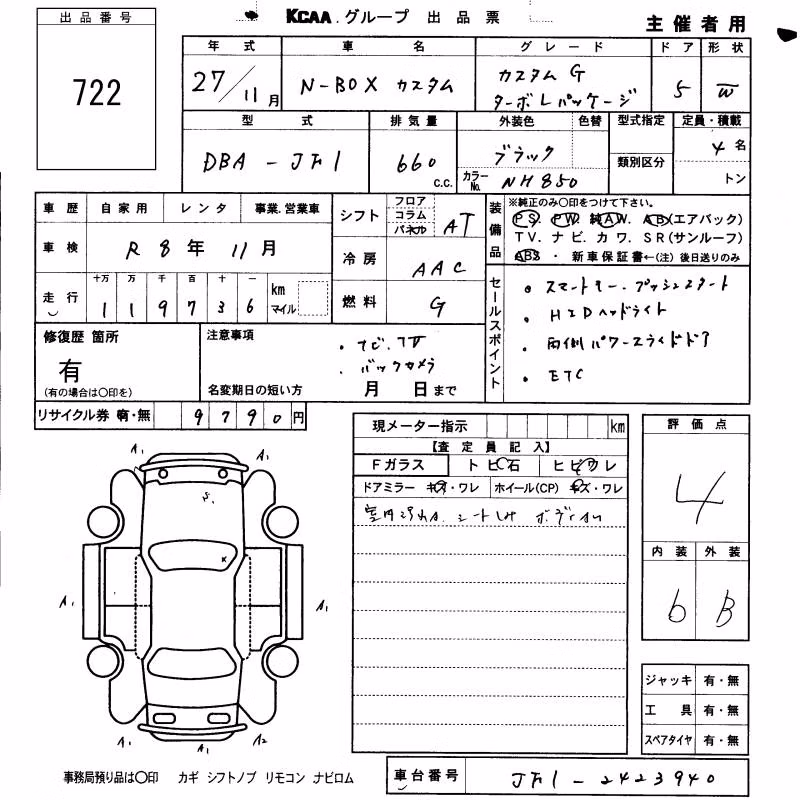 KCAA.グループ 出品票
主催者用
出品番号
722
年式 車名 グレード ドア 形状
27/11月 N-BOX カスタム カスタム G ターボLパッケージ 5 W
型式 排気量 外装色 色替 型式指定 定員・積載
DBA-JF1 660 c.c. ブラック 類別区分 4名
カラーNo. NH850 トン
車歴 自家用 レンタ 事業.営業車
車検 R8年11月
走行 十万 万 千 百 十 一 km マイル
1 1 9 7 3 6
シフト フロア コラム パネル AT
冷房 AAC
燃料 G
装備品 ※純正のみ〇印をつけて下さい。
PS. PW. 純AW. AB(エアバック)
TV. ナビ. カワ. SR(サンルーフ)
ABS ・ 新車保証書←(注)後日送りのみ
セールスポイント
・スマートキー.プッシュスタート
・HIDヘッドライト
・両側パワースライドドア
・ETC
修復歴 箇所
有
(有の場合は〇印を)
注意事項
・ナビ.TV
・バックカメラ
名変期日の短い方 月 日まで
リサイクル券 有・無 9790円
現メーター指示 km
【査定員記入】
Fガラス トビ石 ヒビワレ
ドアミラー キズ・ワレ ホイール(CP) キズ・ワレ
シートしみ
評価点
4
内装 外装
6 B
A1 A1
S1
X
A1 A1
A1 A1 A2
ジャッキ 有・無
工具 有・無
スペアタイヤ 有・無
事務局預り品は〇印 カギ シフトノブ リモコン ナビロム
車台番号 JF1-2423940